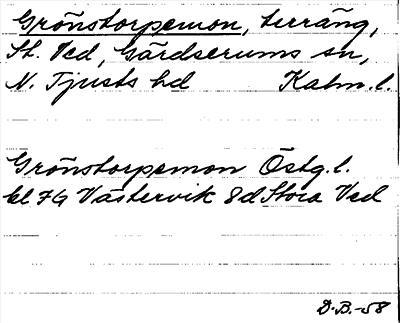 Grönstorpemon, terräng,
St. Ved, Gärdserums sn,
N. Tjusts hd Kalm. l.
Grönstorpemon Östg. l.
bl 7G Västervik 8d Stora Ved
D.B.-58